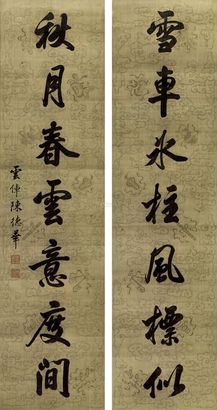 雪車冰柱風標似
秋月春雲意度間
雲倬陳德華